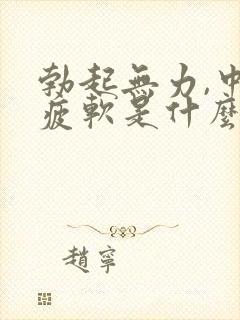 勃起無力,中
疲軟是什麼
趙寧